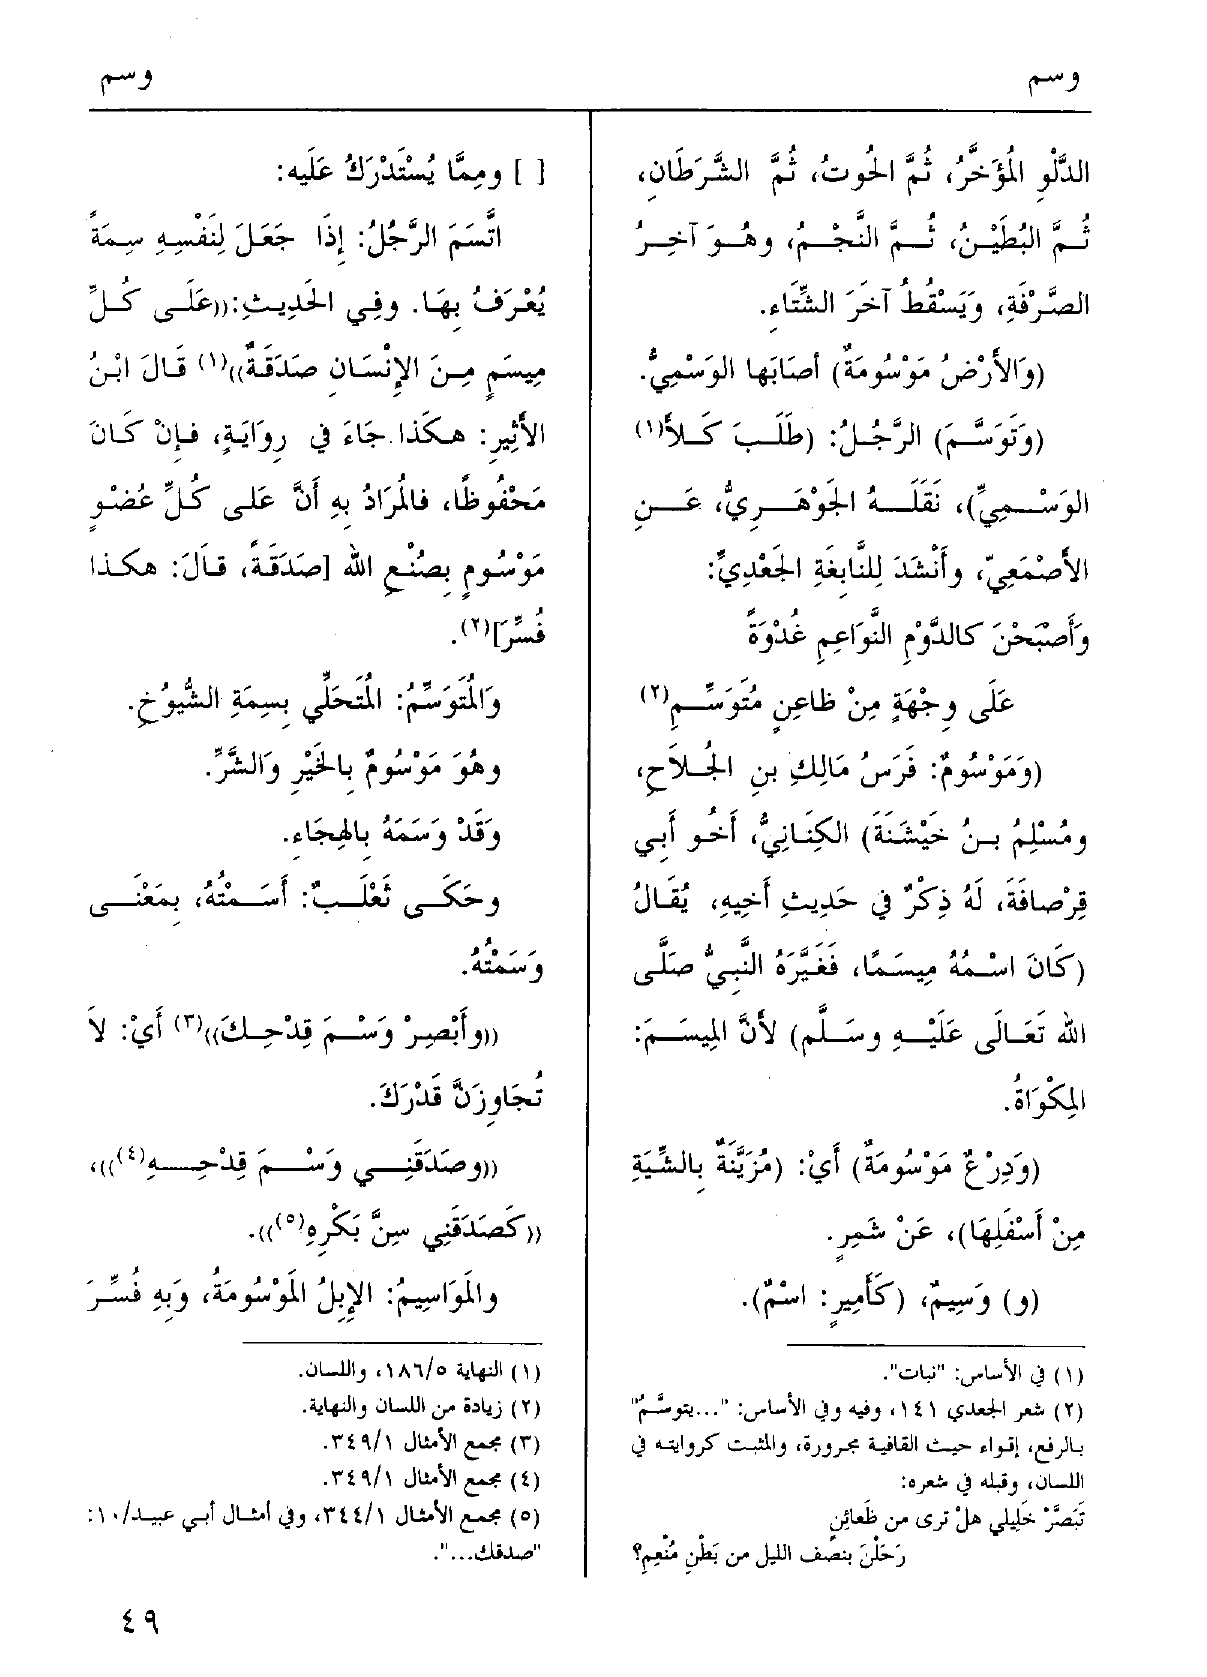 وسم
وسم
الدَّلْوِ المُؤَخَّرُ، ثُمَّ الحُوتُ، ثُمَّ الشَّرَطَانِ،
ثُمَّ البُطَيْنُ، ثُمَّ النَّجْمُ، وهُوَ آخِرُ
الصَّرْفَةِ، وَيَسْقُطُ آخَرَ الشِّتَاءِ.
(وَالأَرْضُ مَوْسُومَةٌ) أصَابَها الوَسْمِيُّ.
(وَتَوَسَّمَ) الرَّجُلُ: (طَلَبَ كَلأَ(١)
الوَسْمِيِّ)، نَقَلَهُ الجَوْهَرِيُّ، عَنِ
الأَصْمَعِيّ، وأَنْشَدَ لِلنَّابِغَةِ الجَعْدِيِّ:
وَأَصْبَحْنَ كالدَّوْمِ النَّوَاعِمِ غُدْوَةً
عَلَى وِجْهَةٍ مِنْ ظاعِنٍ مُتَوَسِّمِ(٢)
(وَمَوْسُومٌ: فَرَسُ مَالِكِ بنِ الجُلاَحِ،
ومُسْلِمُ بنُ خَيْشَنَةَ) الكِنَانِيُّ، أَخُو أَبِي
قِرْصافَةَ، لَهُ ذِكْرٌ في حَدِيثِ أَخِيهِ، يُقَالُ
(كَانَ اسْمُهُ مِيسَمًا، فَغَيَّرَهُ النَّبِيُّ صَلَّى
الله تَعَالَى عَلَيْهِ وسَلَّم) لأَنَّ المِيسَمَ:
المِكْوَاةُ.
(وَدِرْعٌ مَوْسُومَةٌ) أَيْ: (مُزَيَّنَةٌ بِالشِّيَةِ
مِنْ أَسْفَلِهَا)، عَنْ شَمِرٍ.
(و) وَسِيمٌ، (كَأَمِيرٍ: اسْمٌ).
(١) في الأساس: "نبات".
(٢) شعر الجعدي ١٤١، وفيه وفي الأساس: "...يتوسَّمُ"
بالرفع، إقواء حيث القافية مجرورة، والمثبت كروايته في
اللسان، وقبله في شعره:
تَبَصَّرْ خَلِيلي هلْ ترى من ظَعائِنٍ
رَحَلْنَ بنصف الليل من بَطْنِ مُنْعِمِ؟
[ ] ومِمَّا يُسْتَدْرَكُ عَلَيه:
اتَّسَمَ الرَّجُلُ: إِذَا جَعَلَ لِنَفْسِهِ سِمَةً
يُعْرَفُ بِهَا. وفِي الحَدِيثِ:((عَلَى كُلِّ
مِيسَمٍ مِنَ الإِنْسَانِ صَدَقَةٌ))(١) قَالَ ابْنُ
الأَثِيرِ: هكَذا جَاءَ في رِوَايَةٍ، فإنْ كَانَ
مَحْفُوظًا، فالمُرَادُ بِهِ أَنَّ عَلى كُلِّ عُضْوٍ
مَوْسُومٍ بِصُنْعِ الله [صَدَقَةً، قَالَ: هكذا
فُسِّرَ](٢).
وَالمُتَوَسِّمُ: المُتَحَلِّي بِسِمَةِ الشُّيُوخِ.
وهُوَ مَوْسُومٌ بِالخَيْرِ وَالشَّرِّ.
وَقَدْ وَسَمَهُ بِالهِجَاءِ.
وحَكَى ثَعْلَبٌ: أَسَمْتُهُ، بِمَعْنَى
وَسَمْتُهُ.
((وأَبْصِرْ وَسْمَ قِدْحِكَ))(٣) أَيْ: لاَ
تُجَاوِزَنَّ قَدْرَكَ.
((وصَدَقَنِي وَسْمَ قِدْحِهِ(٤)))،
((كَصَدَقَنِي سِنَّ بَكْرِهِ(٥))).
والمَوَاسِيمُ: الإِبِلُ المَوْسُومَةُ، وَبِهِ فُسِّرَ
(١) النهاية ١٨٦/٥، واللسان.
(٢) زيادة من اللسان والنهاية.
(٣) مجمع الأمثال ٣٤٩/١.
(٤) مجمع الأمثال ٣٤٩/١.
(٥) مجمع الأمثال ٣٤٤/١، وفي أمثال أبي عبيد/١٠:
"صدقك...".
٤٩